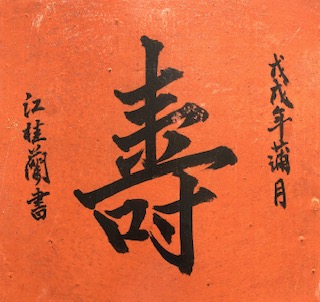 戊戌年蒲月
壽
江桂蘭書